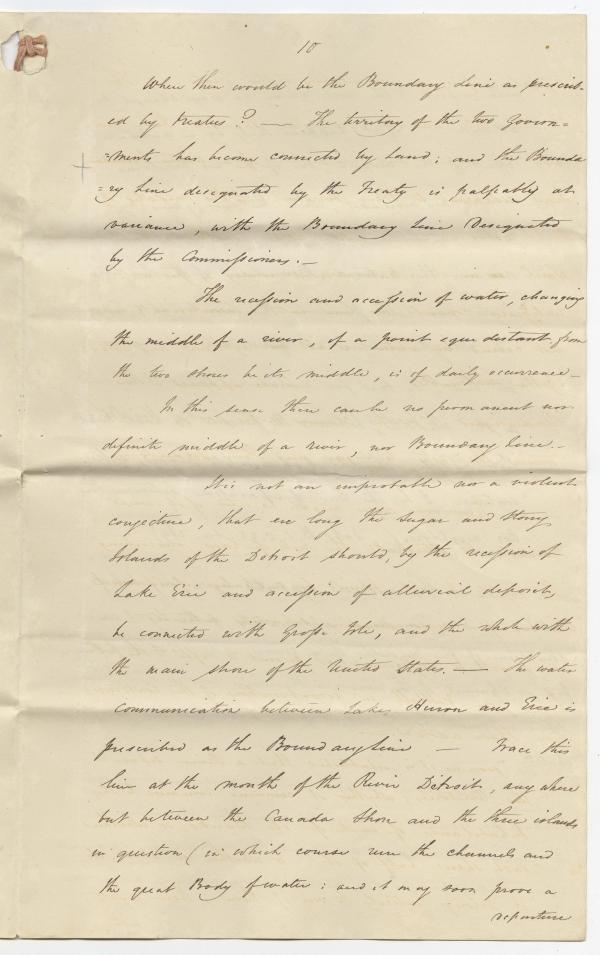 10
When then would be the Boundary Line as prescrib-
ed by treaties? — The territory of the two Govern=
=ments has become connected by Land; and the Bounda
=ry Line designated by the Treaty is palpably at
variance, with the Boundary Line Designated
by the Commissioners. —
The recession and accession of water, changing
the middle of a river, if a point equi distant from
the two shores be its middle, is of daily occurrence —
In this sense there can be no permanent nor
definite middle of a river, nor Boundary line. —
It is not an improbable nor a violent
conjecture, that ere long the Sugar and Stony
Islands of the Detroit should, by the recession of
Lake Erie and accession of alluvial deposits,
be connected with Grosse Isle, and the whole with
the main shore of the United States. — The water
communication between Lakes Huron and Erie is
prescribed as the Boundary Line — Trace this
line at the mouth of the River Detroit, any where
but between the Canada Shore and the three islands
in question (in which course run the channels and
the great Body of water: and it may soon prove a
departure